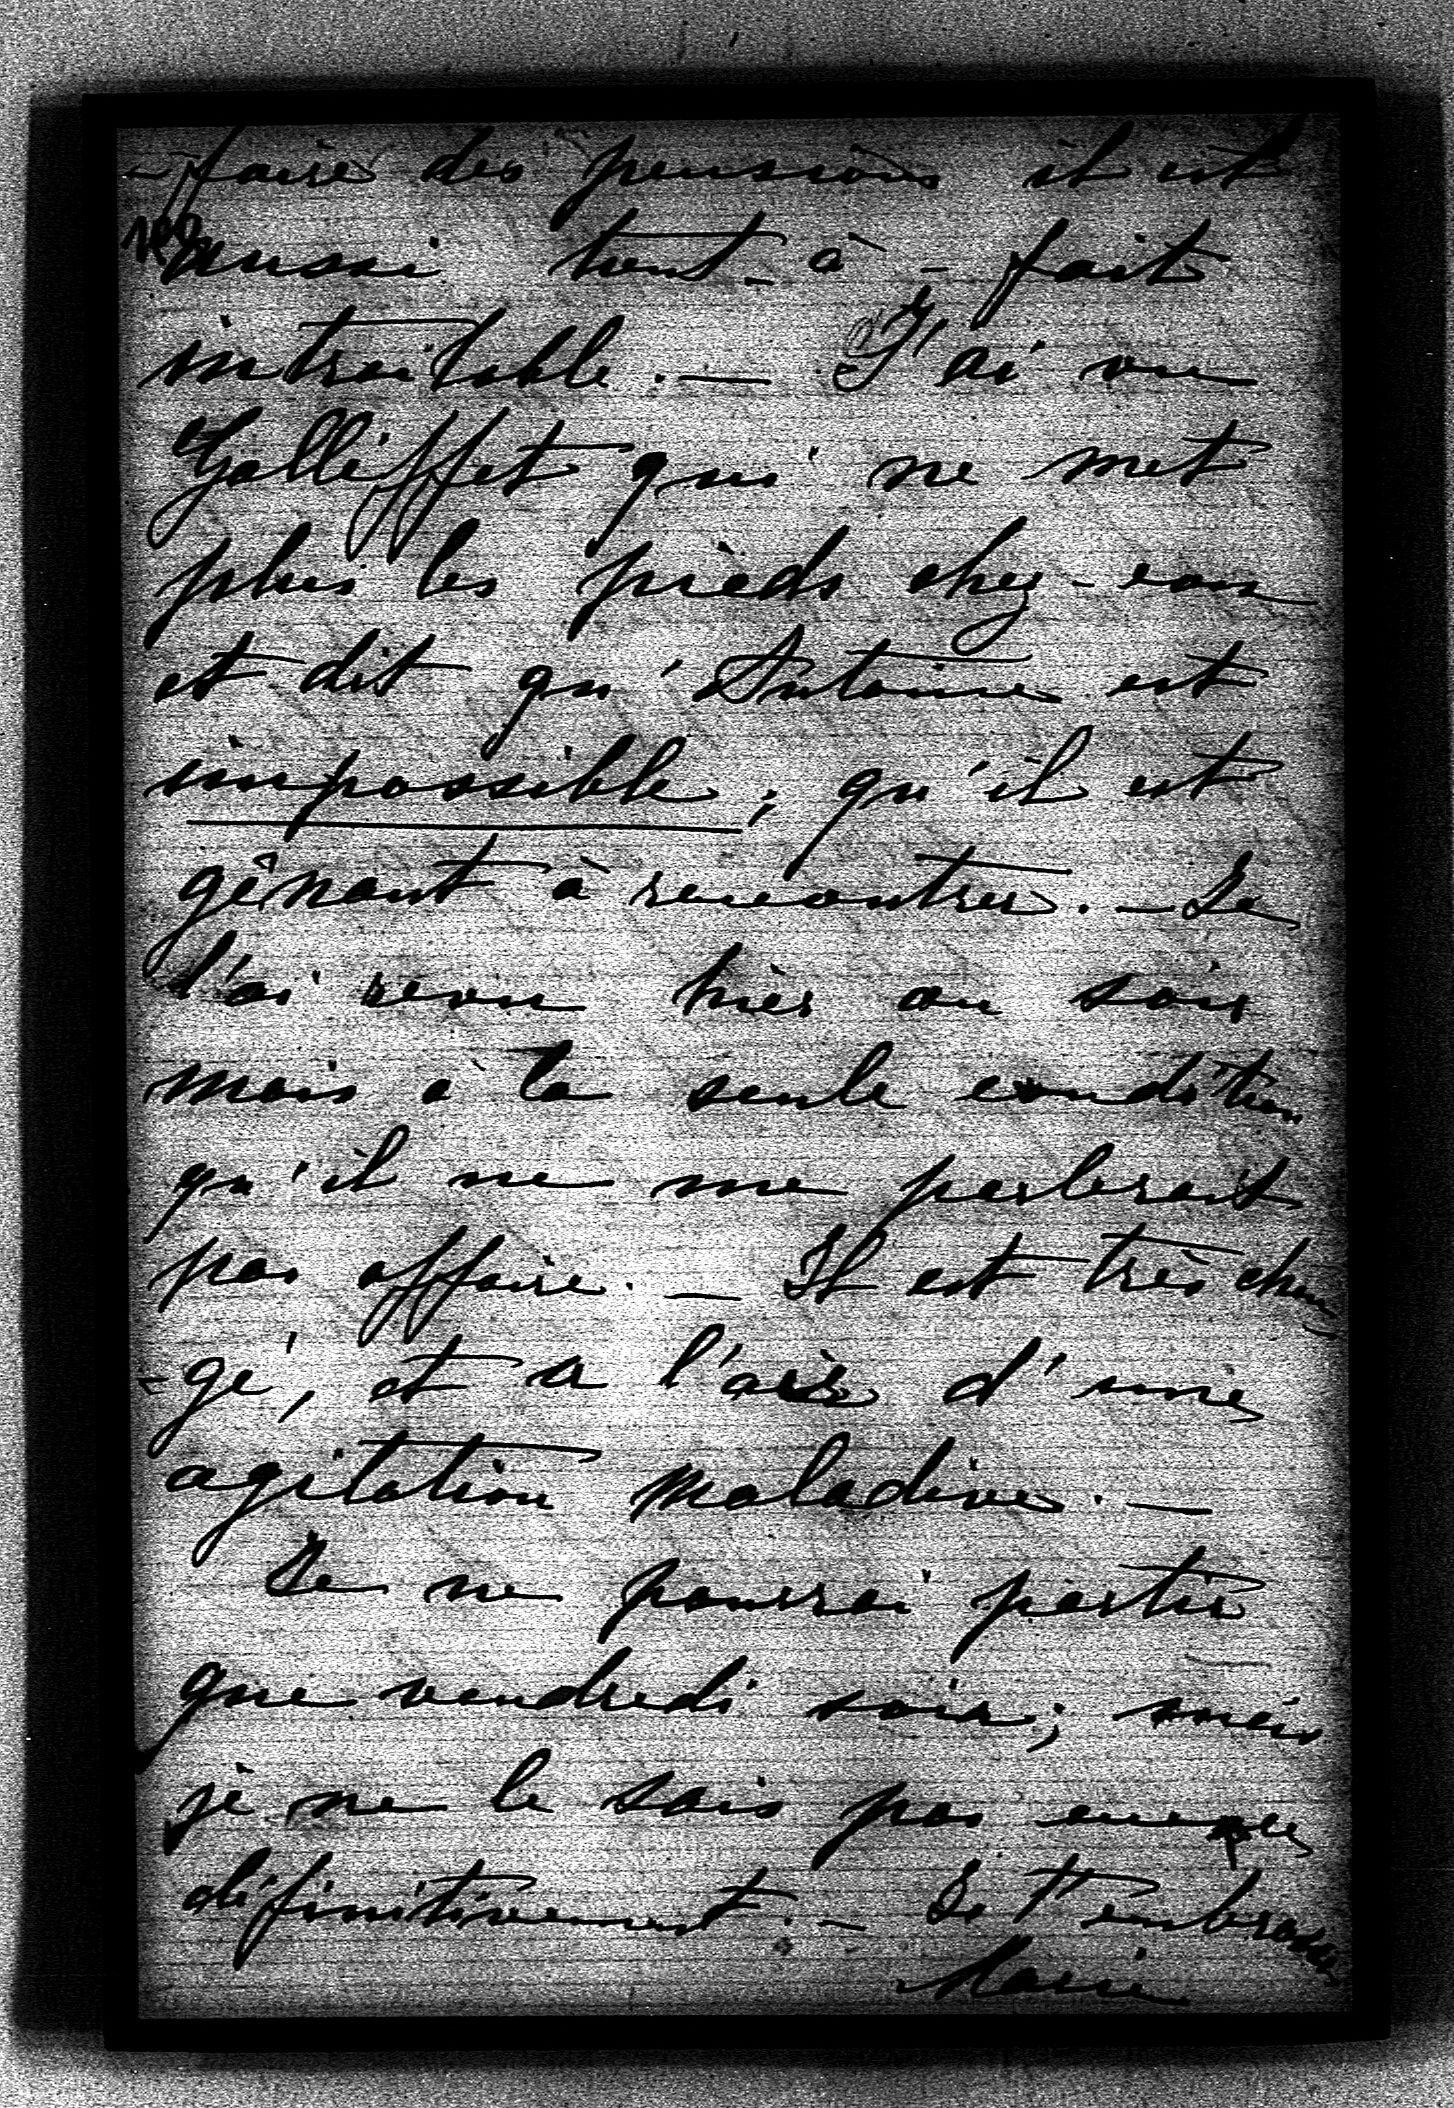 -faire des pensions il est
aussi tout-à-fait
intraitable. — J'ai vu
Galliffet qui ne met
plus les pieds chez-eux
et dit qu'Antoine est
impossible; qu'il est
gênant à rencontrer. — Je
l'ai revu hier au soir
mais à la seule condition
qu'il ne me parlerait
pas affaire. — Il est très chan
-gé, et a l'air d'une
agitation maladive. —
Je ne pourrai partir
que vendredi soir; mais
je ne le sais pas encore
définitivement. — Je t'embrasse
Marie